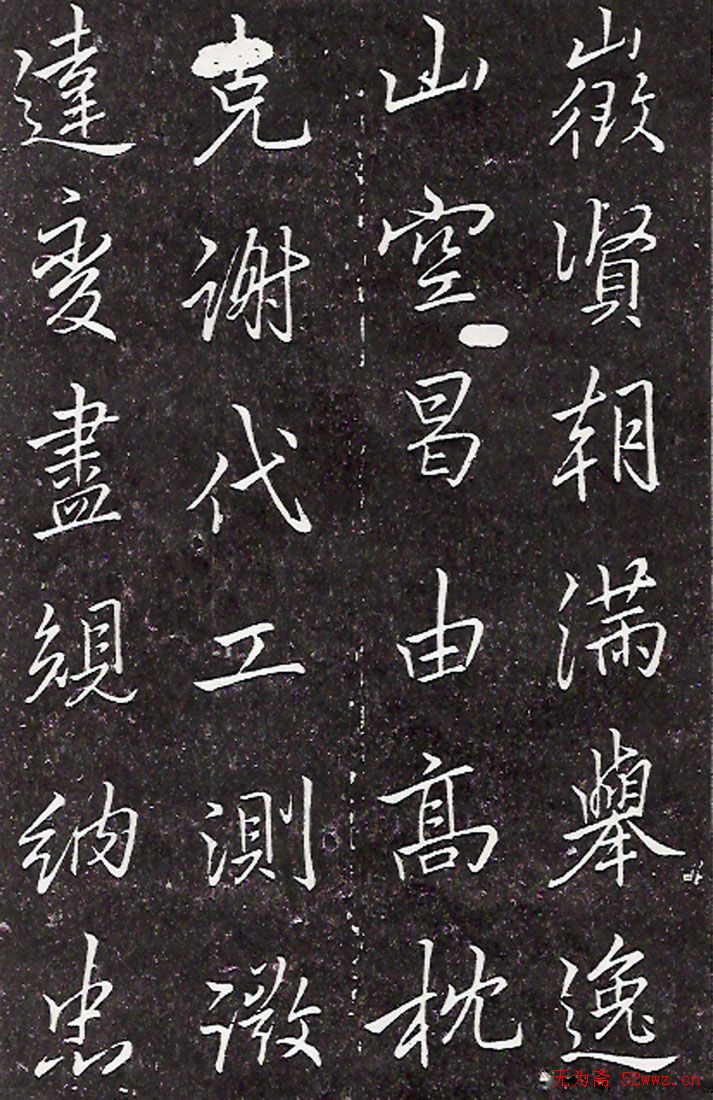 徵賢朝滿舉逸
山空昌由髙枕
克謝代工測微
達變盡規納忠
无为斋 52wwz.cn